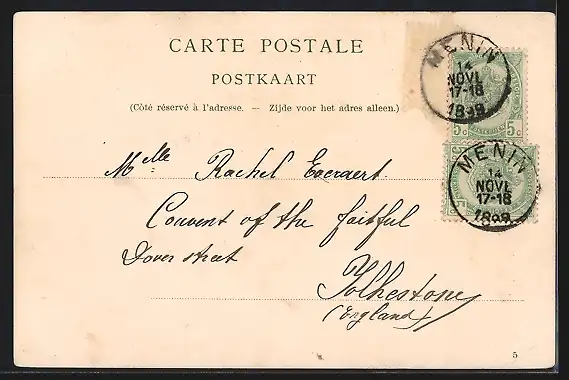 CARTE POSTALE
POSTKAART
(Côté réservé à l'adresse. — Zijde voor het adres alleen.)
MENIN
14
NOVE
17-18
1898
5c 5c
MENIN
14
NOVE
17-18
1898
Melle Rachel Eeeraert.
Convent of the faitful
Dover street
Folkestone
(England)
5